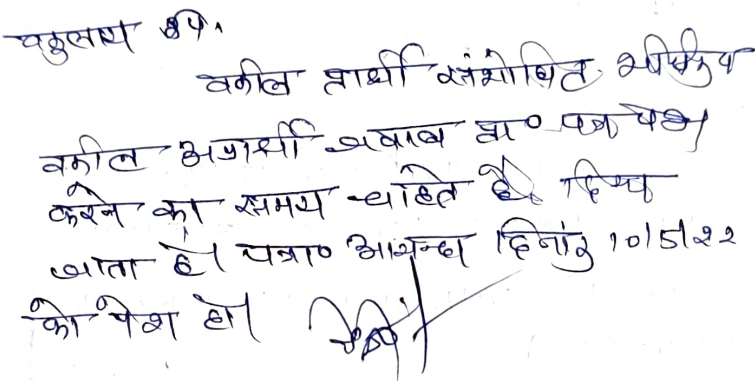 वकुलाय उप.
वकील प्रार्थी संशोधित शीर्षक व
वकील अप्रार्थी जवाब प्रा० पत्र पेश
करने का समय चाहते है, दिया
जाता है। पत्रा० आयन्दा दिनांक 10/5/22
को पेश हो।